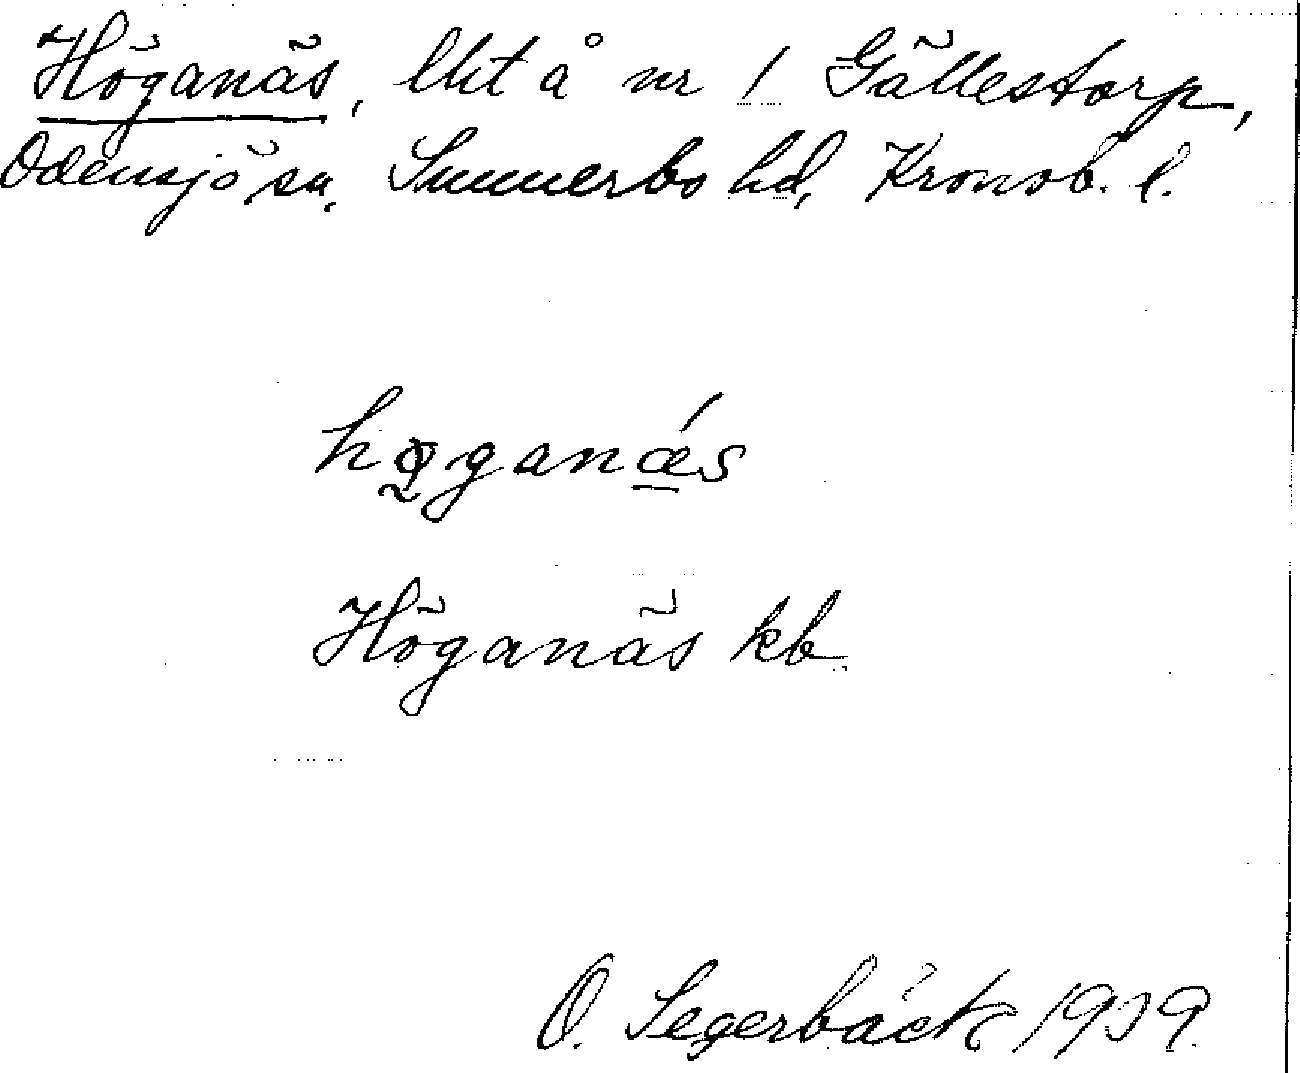 Höganäs, lht å nr 1 Gällestorp,
Odensjö sn, Sunnerbo hd, Kronob. l.
høganǽs
Höganäs kb
O. Segerbäck 1939